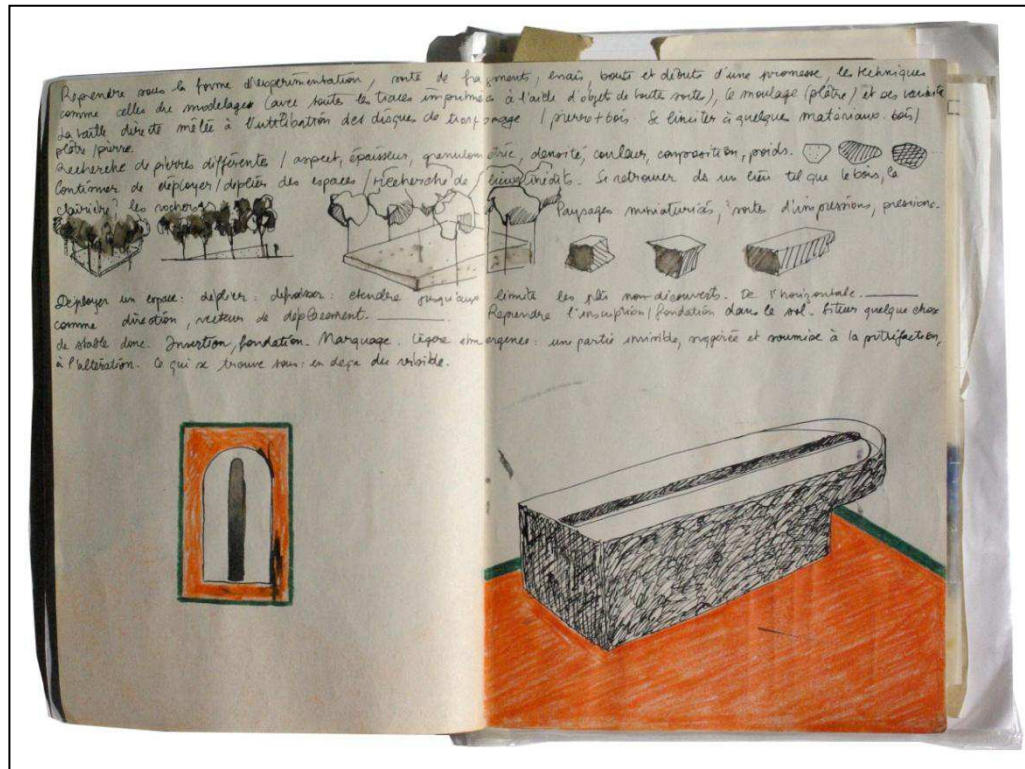 Reprendre sous la forme d'expérimentation, sorte de fragments, essais, bouts et débuts d'une promesse, les techniques
comme celles du modelage (avec toutes les traces imprimées à l'aide d'objet de toutes sortes), le moulage (plâtre) et ses
La taille directe mêlée à l'utilisation des disques de tronçonnage / pierre + bois. Se limiter à quelques matériaux. bois/
plâtre/pierre.
Recherche de pierres différentes / aspect, épaisseur, granulométrie, densité, couleur, composition, poids.
Continuer de déployer/déplier des espaces / recherche de lieux inédits. Se retrouver ds un lieu tel que le bois, la
clairière, les rochers Paysages miniaturisés, sortes d'impressions, pressions.
Déployer un espace : déplier : défroisser : étendre jusqu'aux limite les plis non découverts. De l'horizontale.
comme direction, vecteur de déplacement. Reprendre l'inscription/fondation dans le sol. Situer quelque chose
de stable donc. Insertion, fondation. Marquage. Légère émergence : une partie invisible, suggérée et soumise à la putréfaction,
à l'altération. Ce qui se trouve sous : en deça du visible.